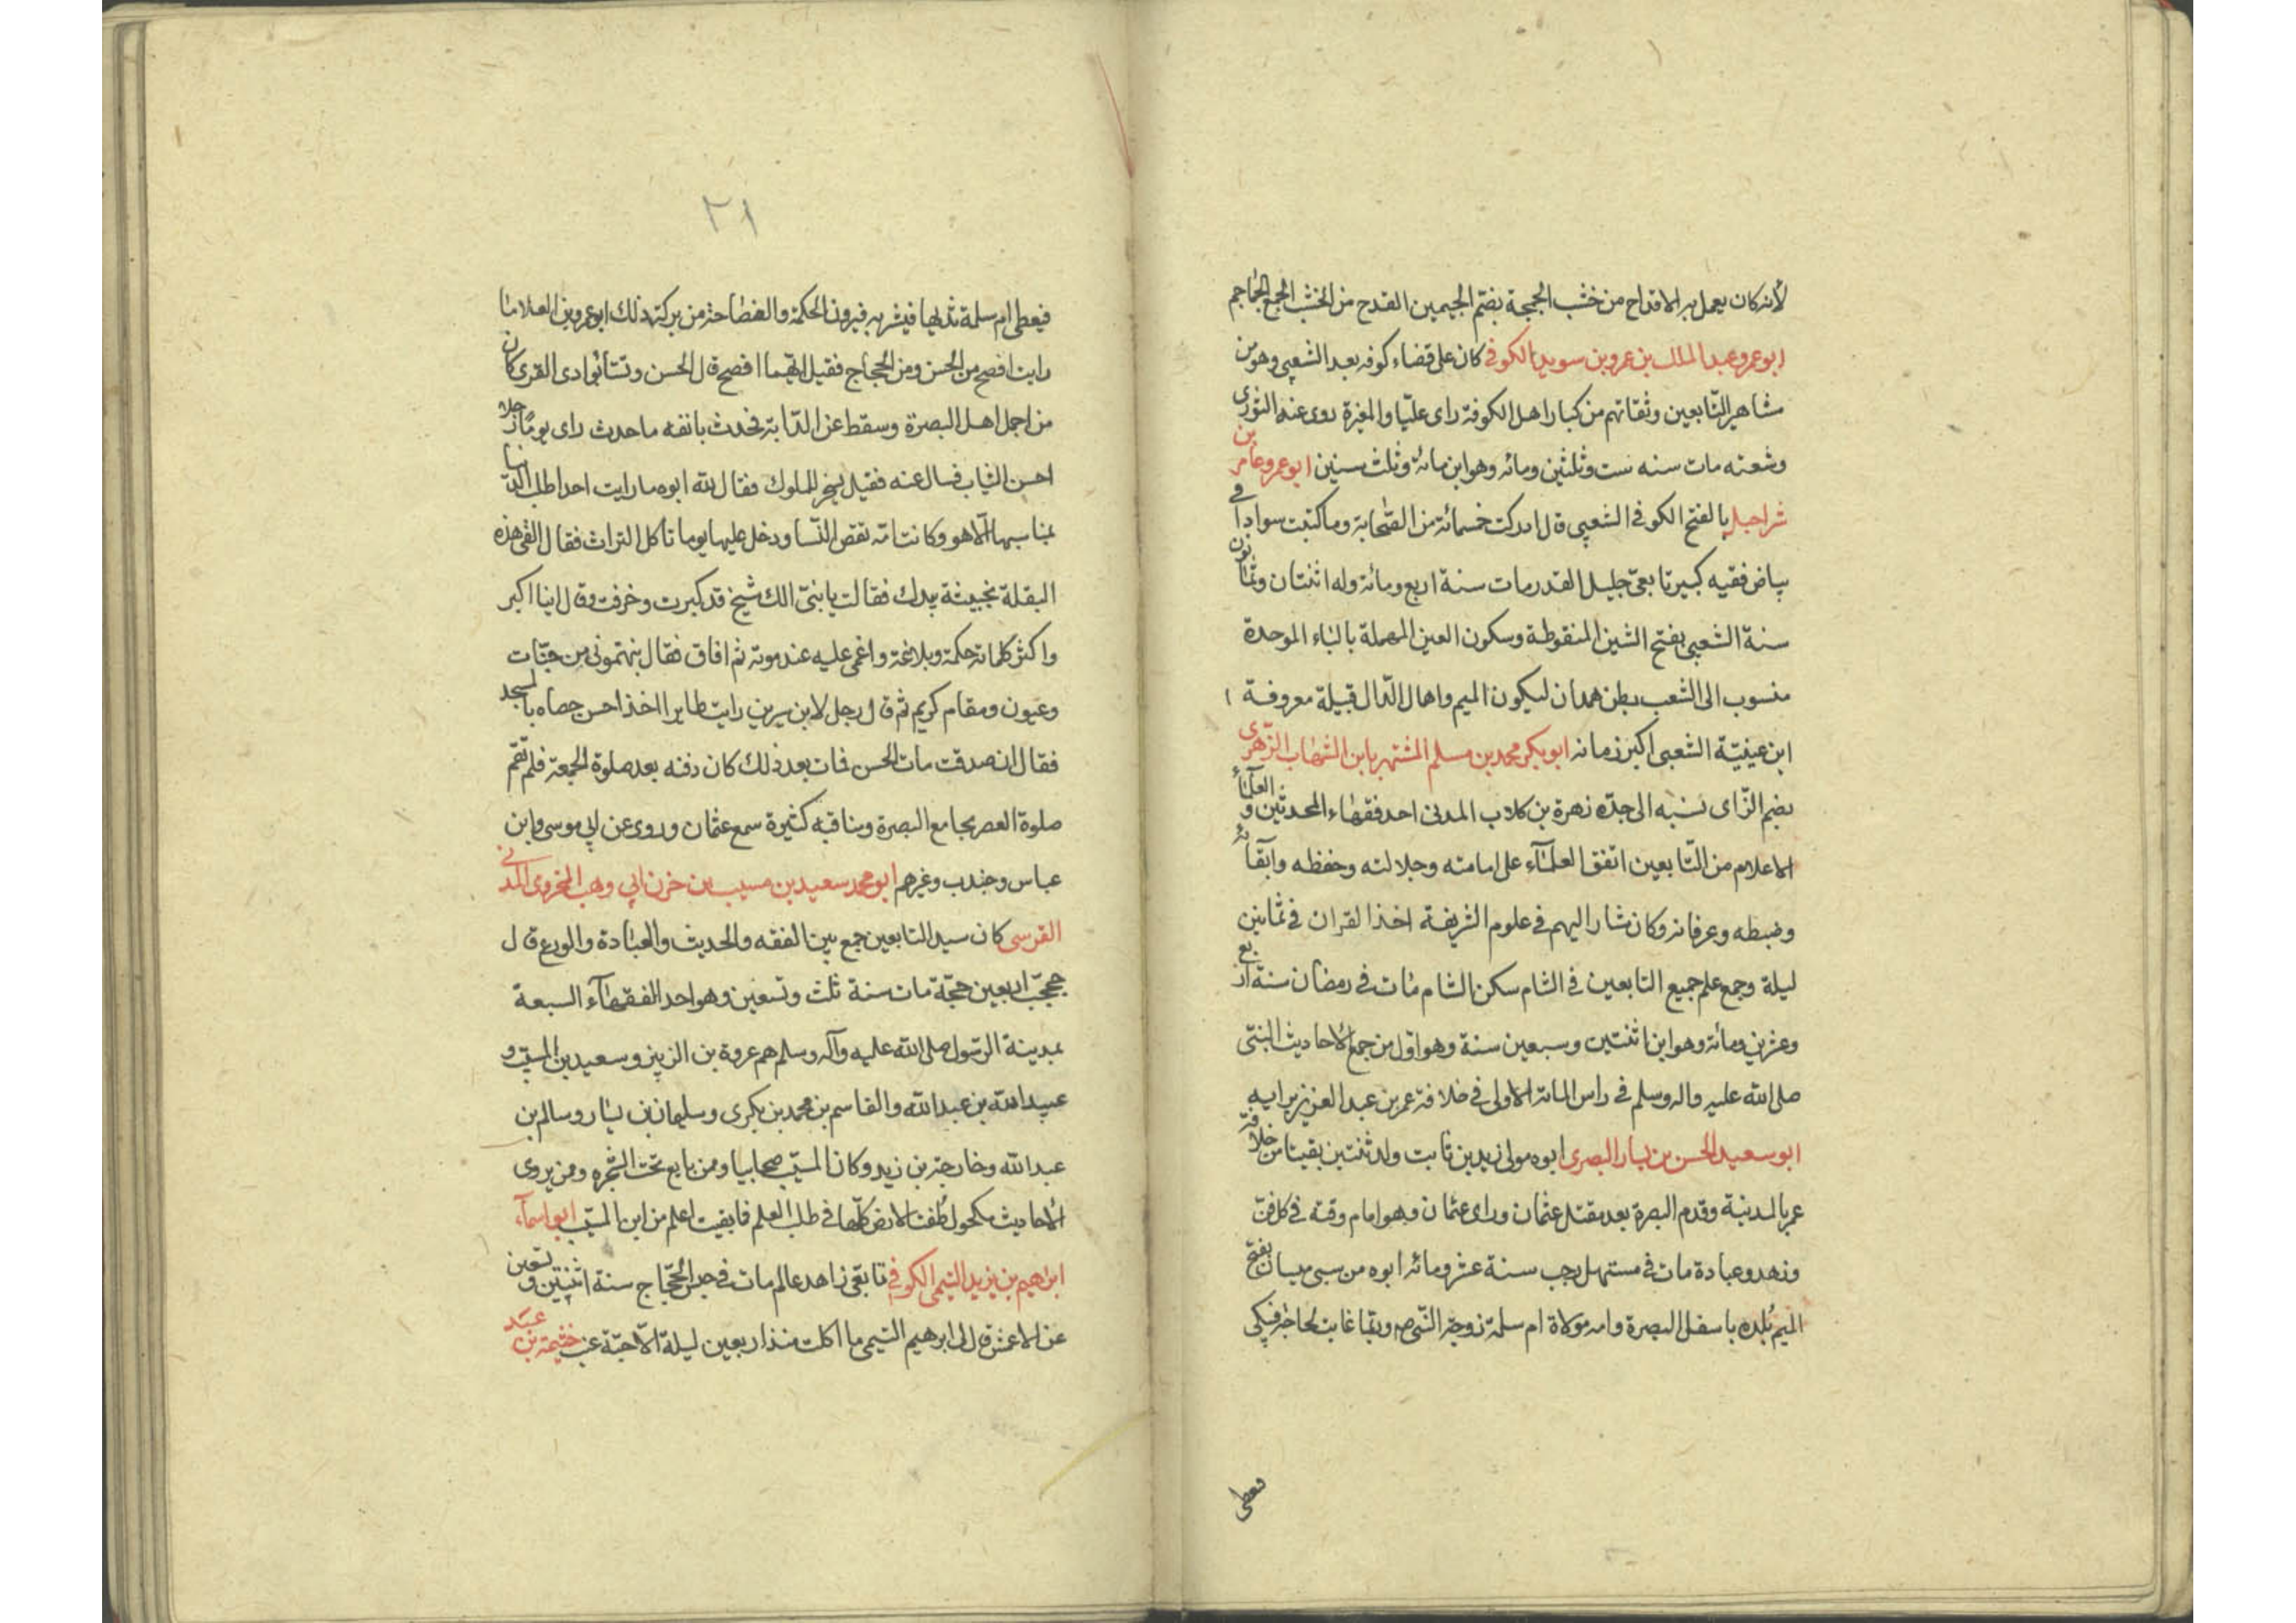 لأنه كان يعمل به الاقداح من خشب الجمجمة بضم الجيمين القدح من الخشب الجمع الجماجم
ابو عمرو عبد الملك بن عمرو بن سويد الكوفى كان على قضاء كوفه بعد الشعبى وهو من
مشاهير التابعين وثقاتهم من كبار اهل الكوفة راى عليّا والمغيرة روى عنه الثورى
وشعته مات سنه ست وثلثين ومائه وهو ابن مائة وثلث سنين ابو عمرو عامر بن
شراحيل بالفتح الكوفى الشعبى قال ادركت خمسمائة من الصحابة وما كتبت سوادا فى
بياض فقيه كبير تابعىّ جليل القدر مات سنة اربع ومائة وله اثنتان وثمانون
سنة الشعبى بفتح الشين المنقوطة وسكون العين المهملة بالباء الموحدة
منسوب الى الشعب بطن همدان لسكون الميم واهال الدّال قبيلة معروفة ١
ابن عينيّة الشعبى اكبر زمانه ابو بكر محمد بن مسلم المشتهر بابن الشهاب الزهرى
بضم الزّاى نسبه الى جدّه زهرة بن كلاب المدنى احد فقهاء المحدثين و العلماء
الاعلام من التّابعين اتفق العلماء على امامته وجلالته وحفظه واتقانه
وضبطه وعرفانه وكان مشار اليهم فى علوم الشريفة اخذ القران فى ثمانين
ليلة وجمع علم جميع التابعين فى الشام سكن الشام مات فى رمضان سنة اربع
وعشرين ومائة وهو ابن اثنتين وسبعين سنة وهو اوّل من جمع الاحاديث النبىّ
صلى الله عليه واله وسلم فى راس المائة الاولى فى خلافة عمر بن عبد العزيز برايه
ابو سعيد الحسن بن يسار البصرى ابوه مولى زيد بن ثابت ولد ثنتين بقيتا من خلافة
عمر بالمدنية وقدم البصرة بعد مقتل عثمان وراى عثمان وهو امام وقته فى كل فن
وزهد وعبادة مات فى مستهل رجب سنة عشر ومائه ابوه من سبى ميسان بفتح
الميم بلده باسفل البصرة وامه مولاة ام سلمة زوجة النبى ص وربما غابت لحاجة فيبكى
فيعطى
٢١
فيعطى ام سلمة ثديها فيشربه فيرون الحكمة والفصاحة من بركته ذلك ابو عمرو بن العلا ما
رايت افصح من الحسن ومن الحجاج فقيل ايّهما افصح قال الحسن ونشأ بوادى القرى كان
من اجمل اهل البصرة وسقط عن الدّابة فحدث بانفه ما حدث راى يوما رجلا
احسن الثياب فسال عنه فقيل يسخر للملوك فقال لله ابوه ما رايت احدا طلب الدّنيا
بما يسبهها الّا هو وكانت امّه تقص النّسا ودخل عليها يوما تاكل التراث فقال القى هذه
البقلة بخبيثة يدك فقالت يا بنىّ انك شيخ قد كبرت وخرفت وقال اينا اكبر
واكثر كلماته حكمة وبلاغة واغمى عليه عند موته ثم افاق فقال نبهتمونى من جنّات
وعيون ومقام كريم ثم قال رجل لابن سيرين رايت طايرا اخذ احسن حصاه بالمسجد
فقال ان صدقت مات الحسن فمات بعد ذلك كان دفنه بعد صلوة الجمعة فلم تقم
صلوة العصر بجامع البصرة ومناقبه كثيرة سمع عثمان وروى عن ابى موسى وابن
عباس وجندب وغيرهم ابو محمد سعيد بن مسيب بن حزن ابى وهب المخزومى المدنى
القرسى كان سيد التابعين جمع بين الفقه والحديث والعبادة والورع قال
حججت اربعين حجّة مات سنة ثلث وتسعين وهو احد الفقهاء السبعة
بمدينة الرّسول صلى الله عليه وآله وسلم هم عروة بن الزبير وسعيد بن المسيّب و
عبيد الله بن عبد الله والقاسم بن محمد بن بكرى وسليمان بن يسار وسالم بن
عبد الله وخارجة بن زيد وكان المسيّب صحابيا وممن بايع تحت الشجره وممن يروى
الاحاديث مكحول طفت الارض كلّها فى طلب العلم فما بقيت اعلم من ابن المسيّب ابو اسماء
ابراهيم بن يزيد التيمى الكوفى تابعى زاهد عالم مات فى حبس الحجّاج سنة اثنتين وتسعين
عن الاعمش قال لى ابرهيم التيمى ما اكلت منذ اربعين ليلة الّا حبّة عنب خثيمة بن عبد